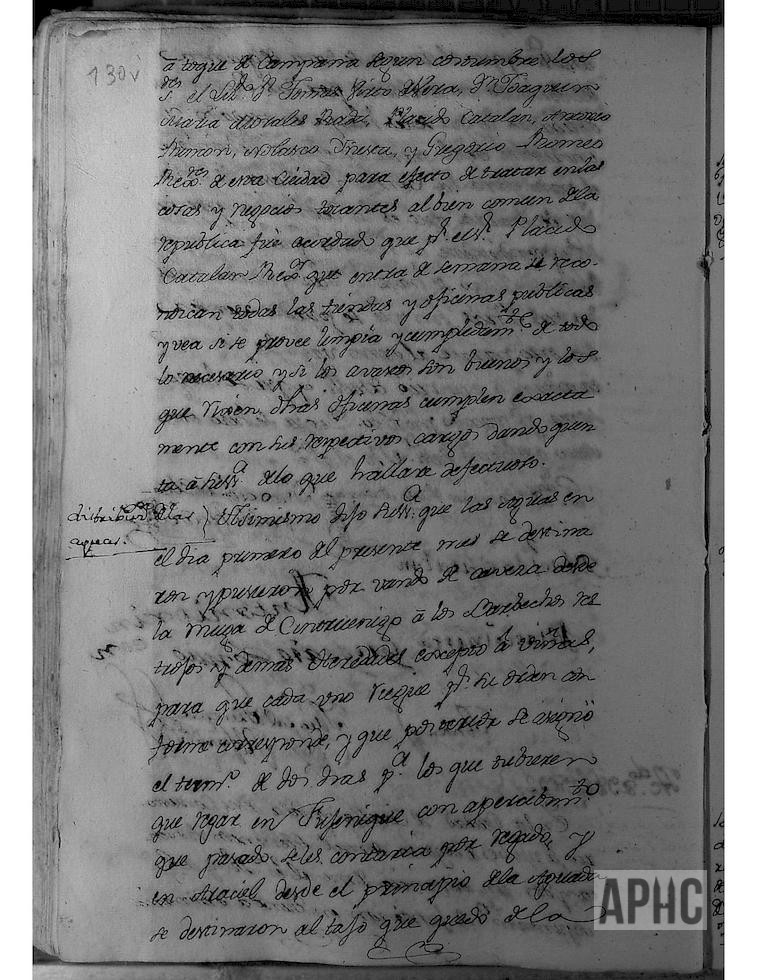 130v
â toque de Campana segun costumbre los S
res
S. el Sr. Dn. Tomas Pinto de Vera, Dn. Joaquin
Maria Morales Rada, Placido Catalan, Antonio
Ximon, Nolasco, y Gregorio Romeo
de esta Ciudad para efecto de tratar en las
cosas y negocios tocantes al bien comun de la
republica fue acordado que pr. el Sr. Placido
Catalan Rexor. que entra de semana se reco-
nozcan todas las tiendas y oficinas publicas
y vea si se provee limpia y cumplidamte. de todo
lo necesario y si los avastos son buenos y los
que viven dhas oficinas cumplen exacta
mente con sus respectivos cargos dando quen
ta â su Sa. de lo que hallare defectuoso.
distribuon. de las
aguas.
Asimismo dijo su Sa. que las Aguas en
el dia primero del presente mes se destina
ron y pusieron por vando de caveza desde
la Muga de Cintruenigo â los Barbechos res
trojos y demas Heredades excepto â viñas,
para que cada uno riegue pr. su orden con
forme corresponde, y que posterior se asignô
el termo. de dos dias pa. los que tubieren
que regar en Fusenique con apercibimto.
que pasado se les contaria por regado, y
en Araciel desde el principio de la Aguada
se destinaron al tajo que quedo de la
APHC